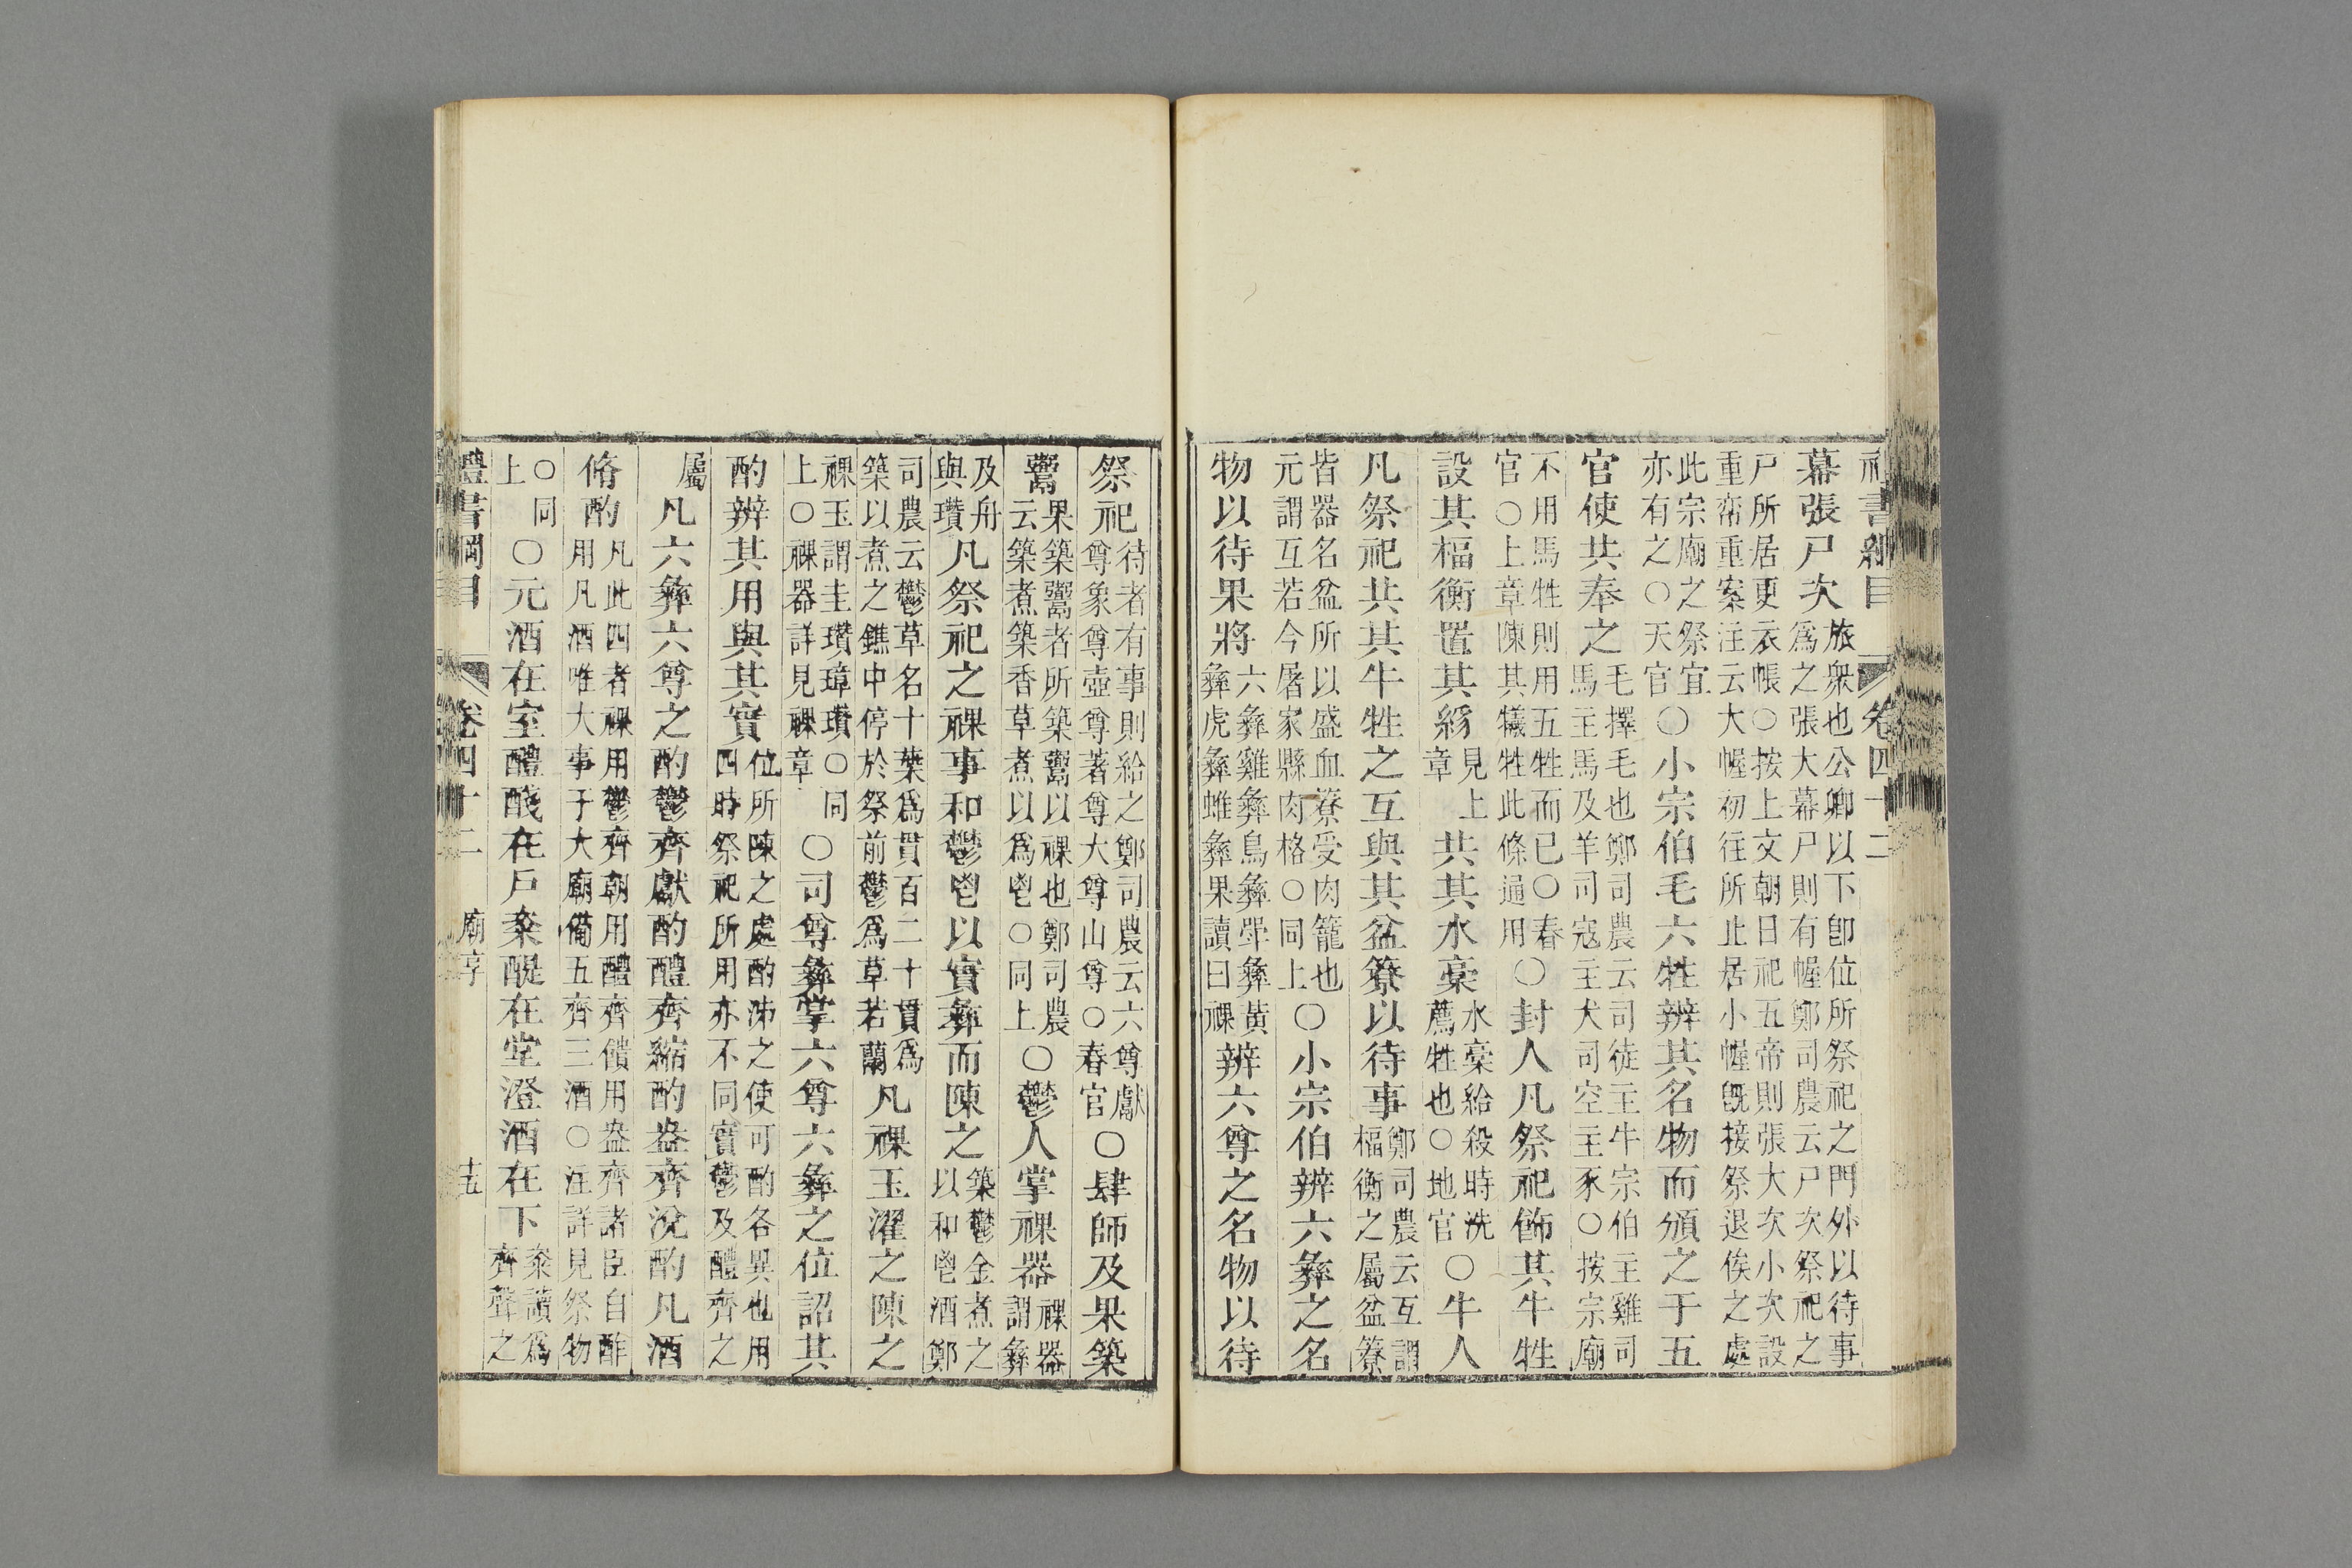 禮書綱目 卷四十二
幕張尸次旅衆也公卿以下卽位所祭祀之門外以待事
爲之張大幕尸則有幄鄭司農云尸次祭祀之
尸所居更衣帳○按上文朝日祀五帝則張大次小次設
重帟重案注云大幄初往所止居小幄旣接祭退俟之處
此宗廟之祭宜
亦有之○天官○小宗伯毛六牲辨其名物而頒之于五
官使共奉之毛擇毛也鄭司農云司徒主牛宗伯主雞司
馬主馬及羊司寇主犬司空主豕○按宗廟
不用馬牲則用五牲而已○春
官○上章陳其犧牲此條通用○封人凡祭祀飾其牛牲
設其楅衡置其絼見上
章共其水稾水稾給殺時洗
薦牲也○地官○牛人
凡祭祀共其牛牲之互與其盆簝以待事鄭司農云互謂
楅衡之屬盆簝
皆器名盆所以盛血簝受肉籠也
元謂互若今屠家縣肉格○同上○小宗伯辨六彝之名
物以待果將六彝雞彝鳥彝斝彝黃
彝虎彝蜼彝果讀曰祼辨六尊之名物以待
祭祀待者有事則給之鄭司農云六尊獻
尊象尊壺尊著尊大尊山尊○春官○肆師及果築
鬻果築鬻者所築鬻以祼也鄭司農
云築煮築香草煮以爲鬯○同上○鬱人掌祼器祼器
謂彝
及舟
與瓚凡祭祀之祼事和鬱鬯以實彝而陳之築鬱金煮之
以和鬯酒鄭
司農云鬱草名十葉爲貫百二十貫爲
築以煮之鐎中停於祭前鬱爲草若蘭凡祼玉濯之陳之
祼玉謂圭瓚璋瓚○同
上○祼器詳見祼章○司尊彝掌六尊六彝之位詔其
酌辨其用與其實位所陳之處酌沛之使可酌各異也用
四時祭祀所用亦不同實鬱及醴齊之
屬凡六彝六尊之酌鬱齊獻酌醴齊縮酌盎齊涗酌凡酒
脩酌凡此四者祼用鬱齊朝用醴齊饋用盎齊諸臣自酢
用凡酒唯大事于大廟備五齊三酒○注詳見祭物
○同
上○元酒在室醴醆在戶粢醍在堂澄酒在下粢讀爲
齊聲之
禮書綱目 卷四十二 廟享 十五